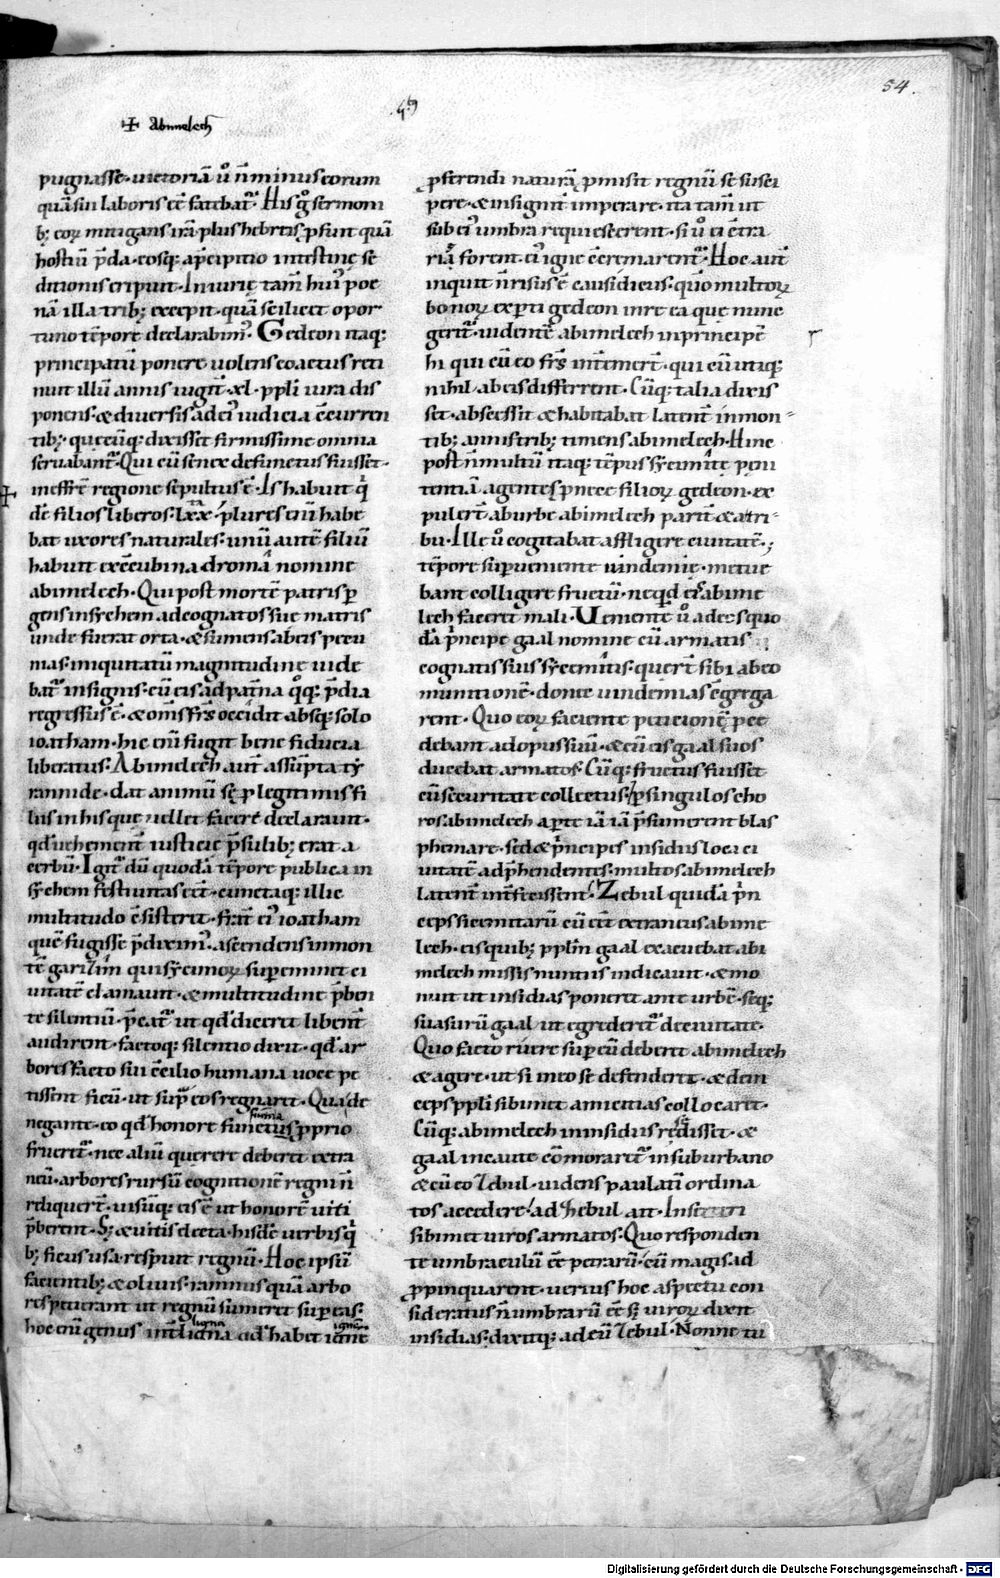 54.
✠ Abimelech
pugnasse · uictoriā ů n̄ minus eorum
quā sui laboris eē fatebat᷑. His gͦ sermoni
bꝫ eorꝝ mitigans irā plus hebreis ꝓfuit quā
hostiū p̄da · eosqꝫ a p̄cipitio intestinę se
ditionis eripuit · Iniurię tam̄ huiꝰ poe
nā illa tribꝫ excepit · quā scilicet opor
tuno tēpore declarabimꝰ. Gedeon itaqꝫ
principatū ponere uolens coactus reti
nuit illū annis uigint̄ · xl · ppl̄i iura dis
ponens · & diuersis ad eiꝰ iudicia c̄curren
tibꝫ · quęcūqꝫ dixisset firmissime omnia
seruabant᷑. Qui cū senex defunctus fuisset ·
in effrē regione sepultus ē. Is habuit q̄
dē filios liberos · lxx · plures enī habe
bat uxores naturales · unū autē filiū
habuit ex c̄cubina droma nomine
abimelech · Qui post mortē patris ꝑ
gens in sychem ad cognatos suę matris
unde fuerat orta · & sumens ab eis pecu
nias · iniquitatū magnitudine uide
bat᷑ insignis · cū eis ad pat̄na
regressus ē · & om̄s frēs occidit absqꝫ solo
ioatham · hic enī fugit bene fiducia
liberatus. Abimelech aut̄ assūpta ty
rannide · dat animū sę ꝓ legitimis fi
lius in his quę uellet facere declarauit ·
qd̄ uehement̄ iusticię p̄sulibꝫ erat a
cerbū. Igit᷑ dū quodā tēpore publica in
sychem festiuitas eēt · cunctaqꝫ illic
multitudo c̄sisteret · frat̄ eiꝰ ioatham
quē fugisse p̄diximꝰ · ascendens in mon
tē garizim qui sycimorꝝ supeminet ci
uitatē clamauit · & multitudine p̄ben
te silentiū · p̄cat᷑ ut qd̄ diceret libent̄
audirent · factoqꝫ silentio dixit · qd̄ ar
bores facto sui c̄cilio humana uoce pe
tissent ficū · ut sup̄ eos regnaret · Qua
negante · eo qd̄ honore fructus ꝓprio
frueret᷑ · nec aliū querere deberet extra
neū · arbores rursū cogitationē regni n̄
reliquert̄ · uisūqꝫ eis ē ut honorē uiti
p̄berent · Sꝫ & uitis electa · hisdē uerbis qͥ
bꝫ ficus usa · respuit regnū · Hoc ipsū
facientibꝫ & oliuis · ramnus quā arbo
res petierant ut regnū sumeret sup eas ·
hoc enī genus int̄ ligna qd̄ habet igne
ꝓferendi naturā ꝓmisit regnū se susci
pere · & insignit̄ imperare · ita tam̄ ut
sub eiꝰ umbra requiescerent · si ů ei c̄tra
rii forent · eiꝰ igne c̄cremarent᷑. Hoc aut̄
inquit n̄ risus ē causidicus · quō multorꝝ
bonorꝝ expti gedeon in re ea que nunc
gerit᷑ · uidentē abimelech in principē
hi qui cū eo frēs int̄emert̄ · qui cū utiqꝫ
nihil ab eis differrent · Cūqꝫ talia dixis
set · abscessit & habitabat latent̄ in mon
tibꝫ annis tribꝫ timens abimelech · Hinc
post n̄ multū itaqꝫ tēpus sycimitę pęni
tentiā agentes ꝓ nece filiorꝝ gedeon · ex
pulert̄ ab urbe abimelech parit̄ & a tri
bu · Ille ů cogitabat affligere ciuitatē ·
tēpore superueniente uindemię · metue
bant colligere fructū · ne qd̄ c̄tra abime
lech faceret mali. Veniente ů ad eos quo
dā p̄ncipe gaal nomine cū armatis
cognatis suis sycimitis · quert̄ sibi ab eo
munitionē · donec uindemias c̄grega
rent · Quo eorꝝ faciente peticionē p̄ce
debant ad opus suū · & cū eis gaal suos
ducebat armatos · Cūqꝫ fructus fuisset
cū securitate collectus · ꝑ singulos cho
ros abimelech aperte iā iā p̄sumerent blas
phemare · sed & p̄ncipes insidiis loca ci
uitatē adp̄hendentes · multos abimelech
latent̄ int̄fecissent · Zebul quidā p̄n
ceps sicimitarū cū eēt extraneus abime
lech · eis quibꝫ ppl̄m gaal exacuebat abi
melech missis nuntiis indicauit · & mo
nuit ut insidias poneret ante urbē · seqꝫ
suasurū gaal ut egrederet᷑ de ciuitate ·
Quo facto ruere sup eū deberet abimelech
& agere · ut si in eo se defenderet · & dein
ceps ppl̄i sibimet amicitias collocaret ·
Cūqꝫ abimelech in insidiis resedisset · &
gaal incaute cōmoraret᷑ in suburbano
& cū eo Zebul · uidens paulatī ordina
tos accedere · ad Zebul ait · Insecuti
sibimet uiros armatos · Quo responden
te umbraculū eē petrarū · cū magis ad
ꝓpinquarent · uerius hoc aspectu con
sideratus n̄ umbrarū eē sꝫ uirorꝝ dixit
insidias · dixitqꝫ ad eū Zebul · Nonne tu
Digitalisierung gefördert durch die Deutsche Forschungsgemeinschaft - DFG